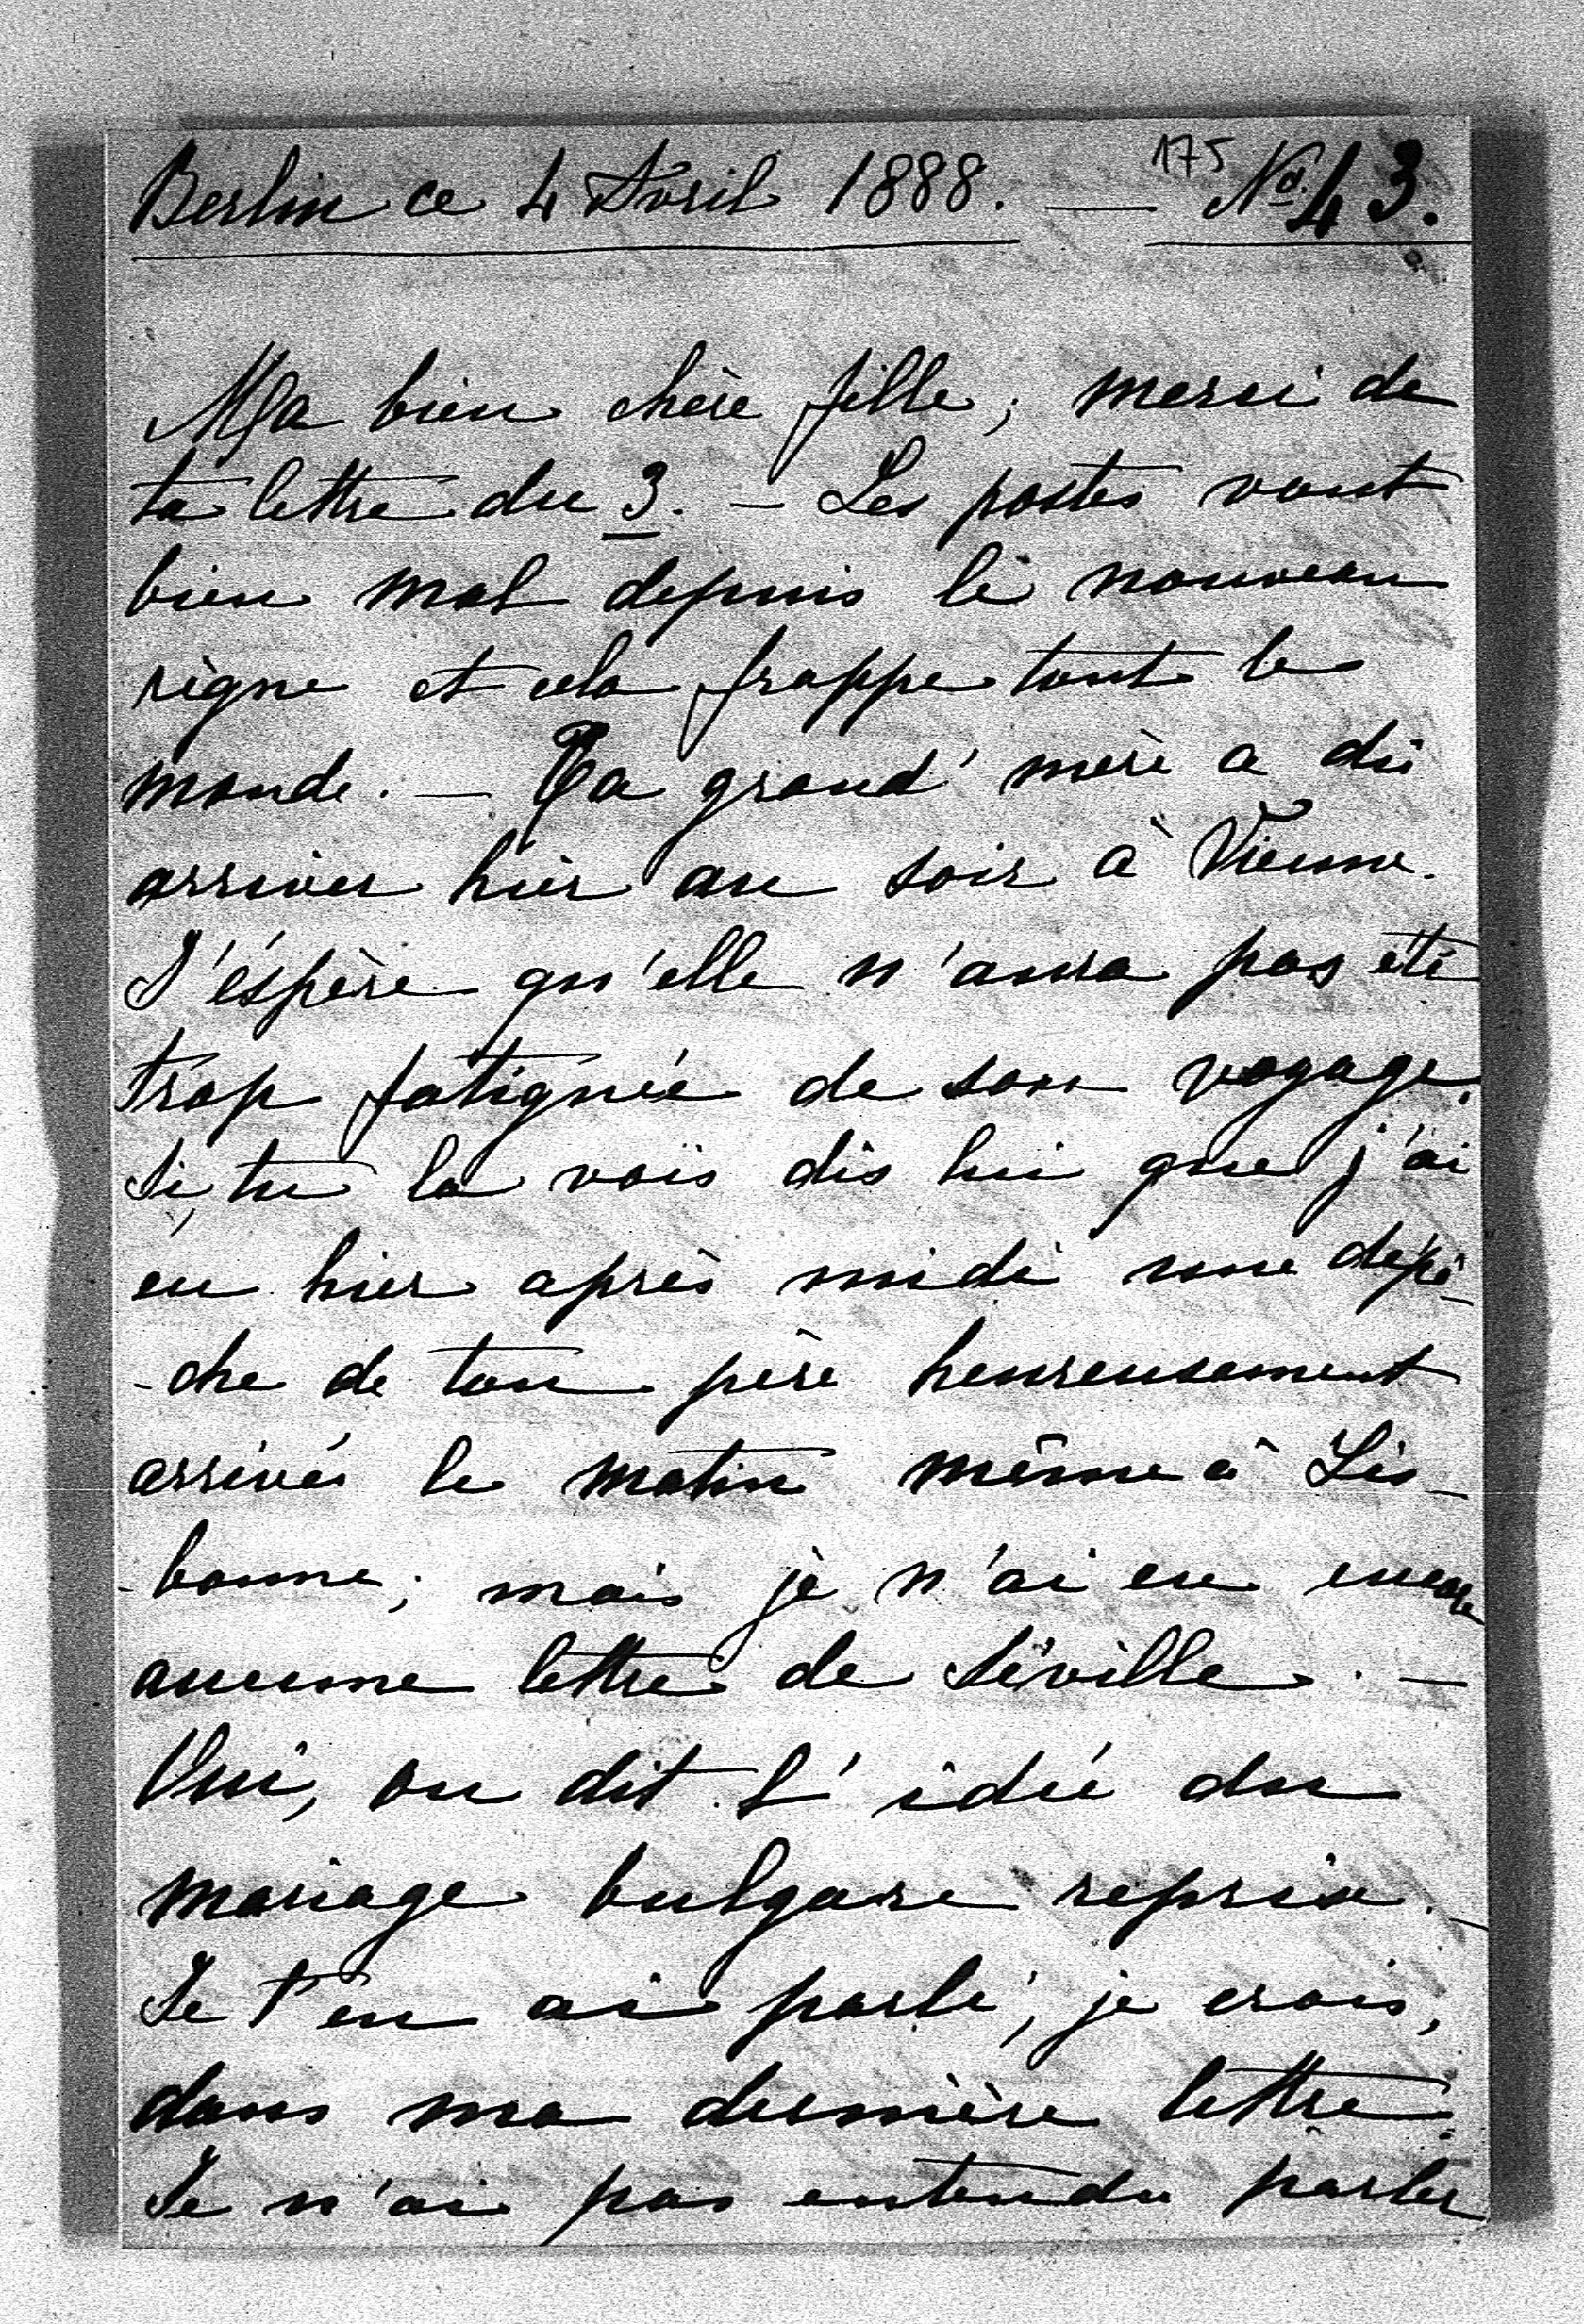 Berlin ce 4 Avril 1888. — 175 No. 43.
Ma bien chère fille; merci de
ta lettre du 3. – Les postes vont
bien mal depuis le nouveau
règne et cela frappe tout le
monde. — Ta grand' mère a dû
arriver hier au soir à Vienne.
J'éspère qu'elle n'aura pas été
trop fatiguée de son voyage.
Si tu la vois dis lui que j'ai
eu hier après midi une dépê-
-che de ton père heureusement
arrivé le matin même à Lis-
-bonne; mais je n'ai eu encore
aucune lettre de Séville. —
Oui, on dit l'idée du
mariage bulgare reprise. –
Je t'en ai parlé, je crois,
dans ma dernière lettre.
Je n'ai pas entendu parler